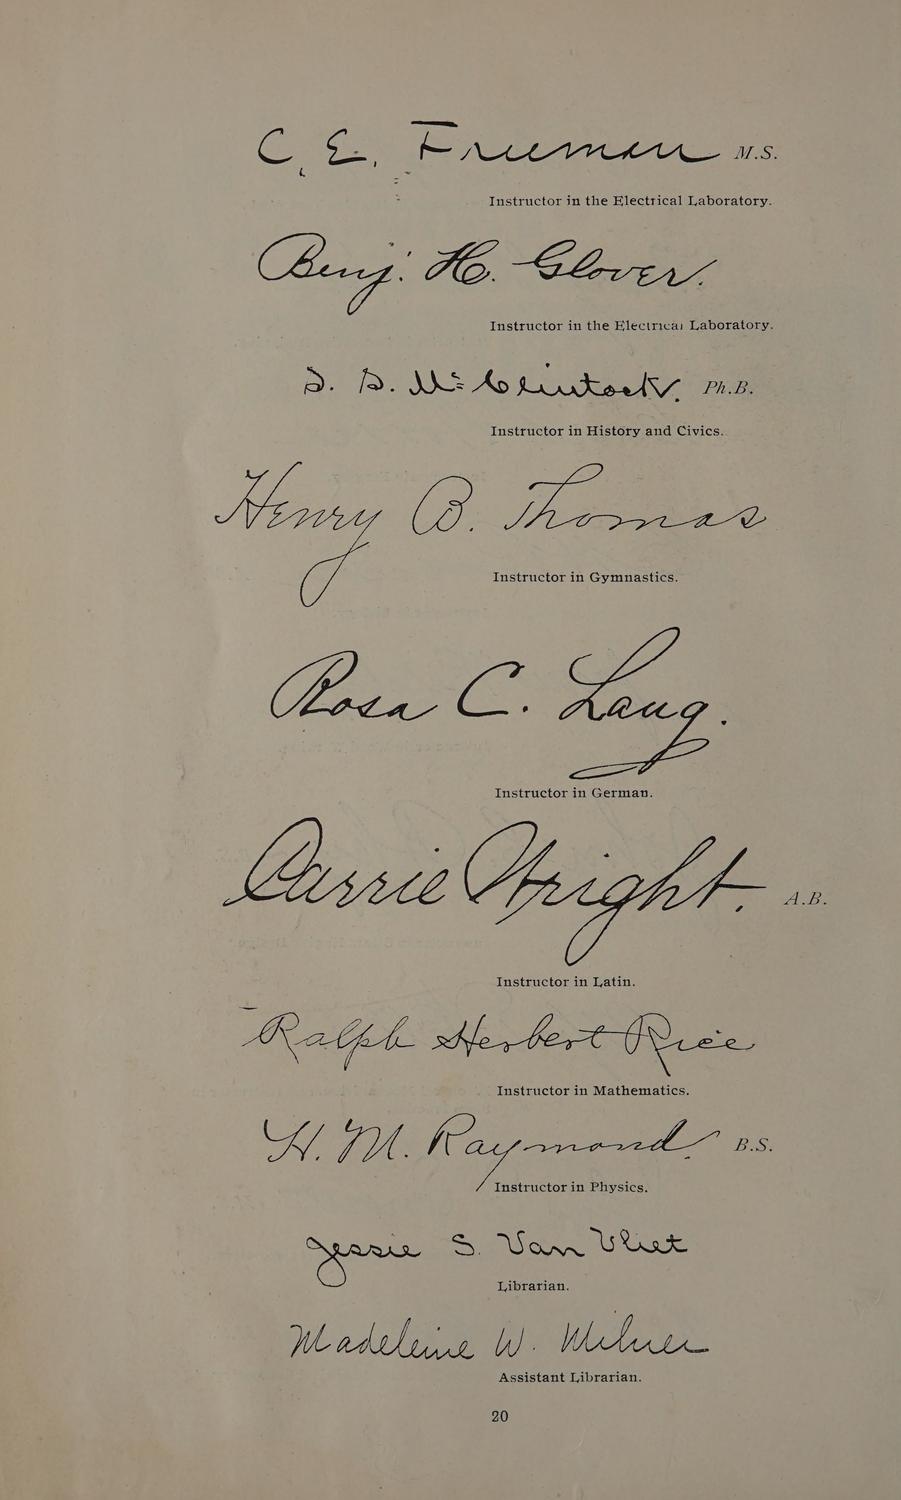 C. E. Freeman M.S.
Instructor in the Electrical Laboratory.
Benj. H. Glover.
Instructor in the Electrical Laboratory.
S. B. McClintock, Ph.B.
Instructor in History and Civics.
Henry B. Thomas
Instructor in Gymnastics.
Rosa C. Lang.
Instructor in German.
Carrie Wright. A.B.
Instructor in Latin.
Ralph Herbert Rice
Instructor in Mathematics.
H. M. Raymond. B.S.
Instructor in Physics.
Jessie S. Van Vliet
Librarian.
Madeleine W. Milner
Assistant Librarian.
20